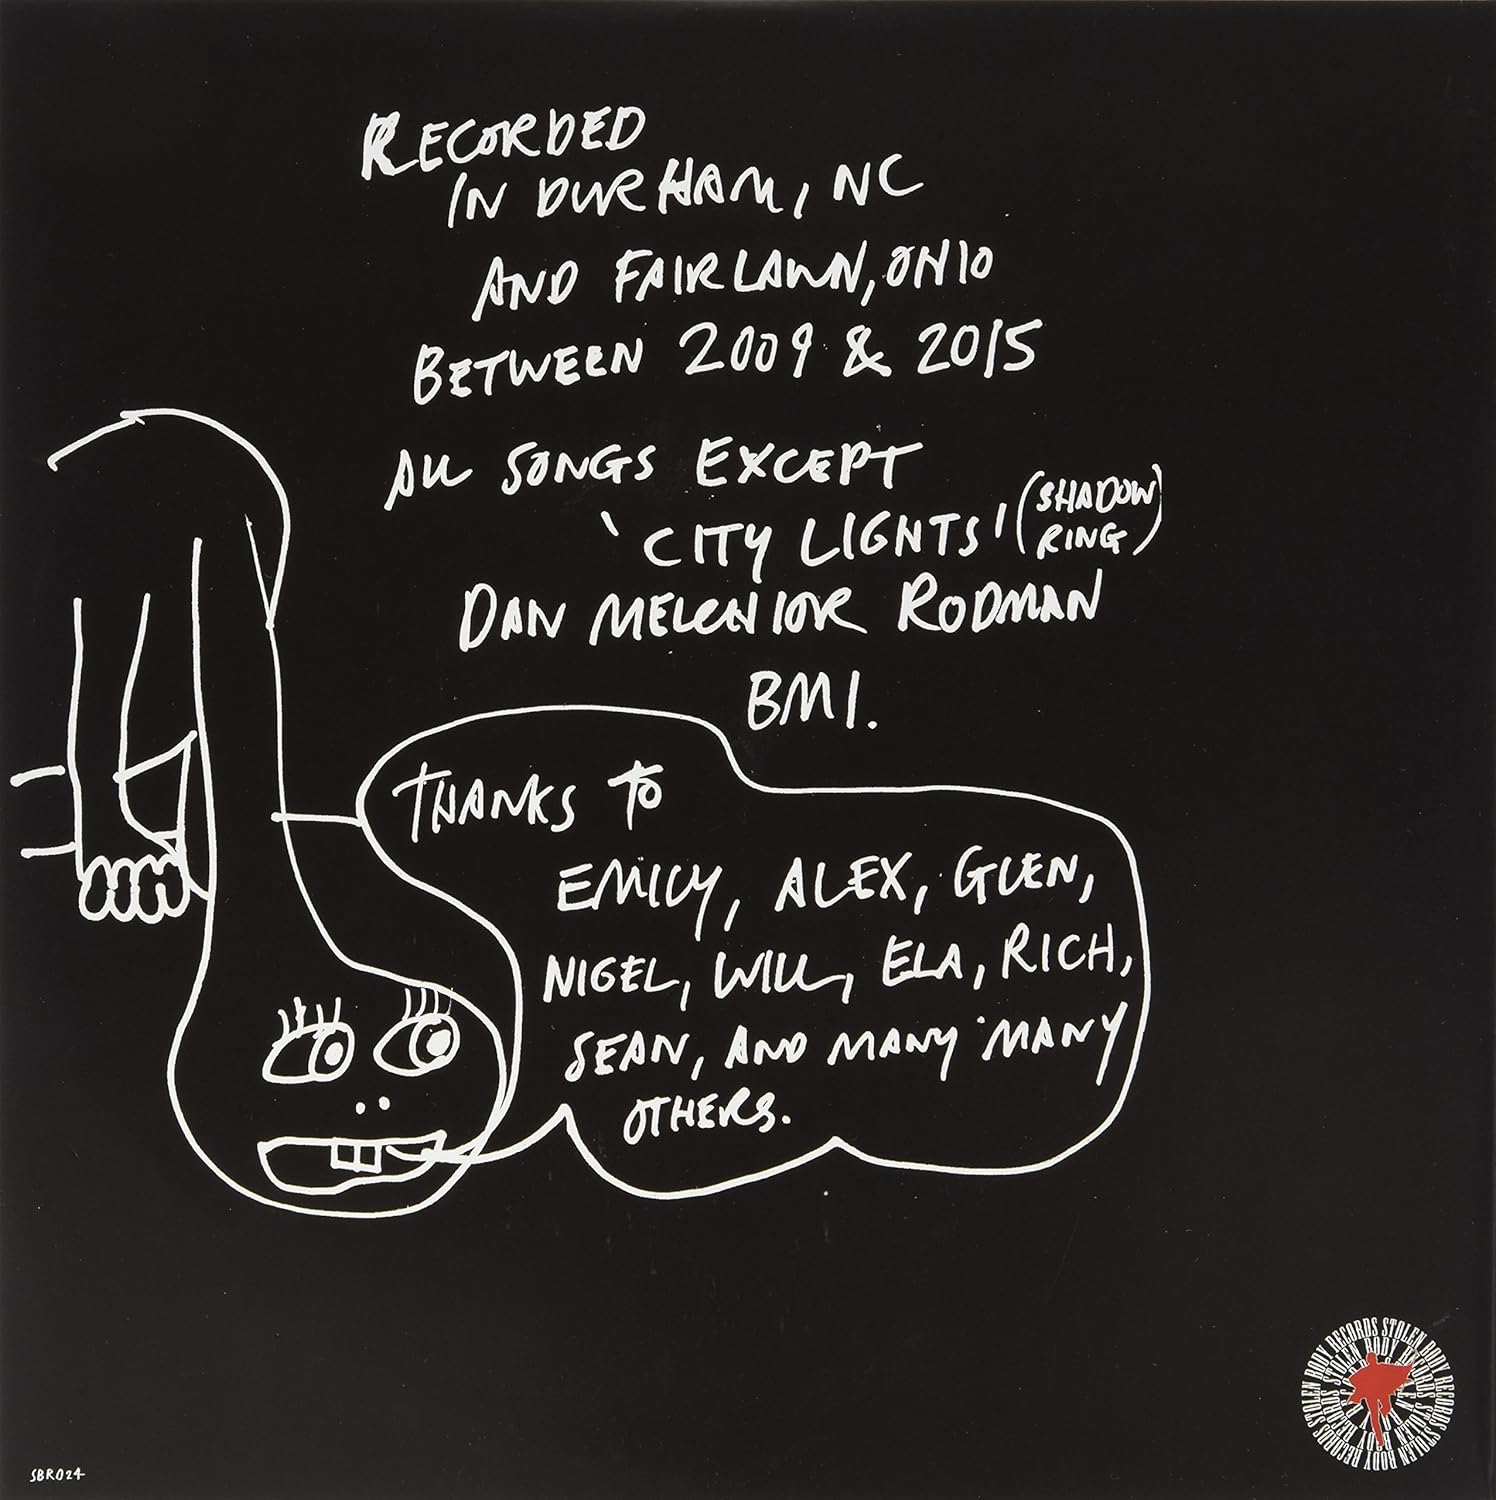 RECORDED
IN DURHAM, NC
AND FAIRLAWN, OHIO
BETWEEN 2009 & 2015
ALL SONGS EXCEPT
'CITY LIGHTS' (SHADOW RING)
DAN MELCHIOR RODMAN
BMI.
THANKS TO
EMILY, ALEX, GLEN,
NIGEL, WILL, ELA, RICH,
SEAN, AND MANY MANY
OTHERS.
SBR024
STOLEN BODY RECORDS STOLEN BODY RECORDS STOLEN BODY RECORDS